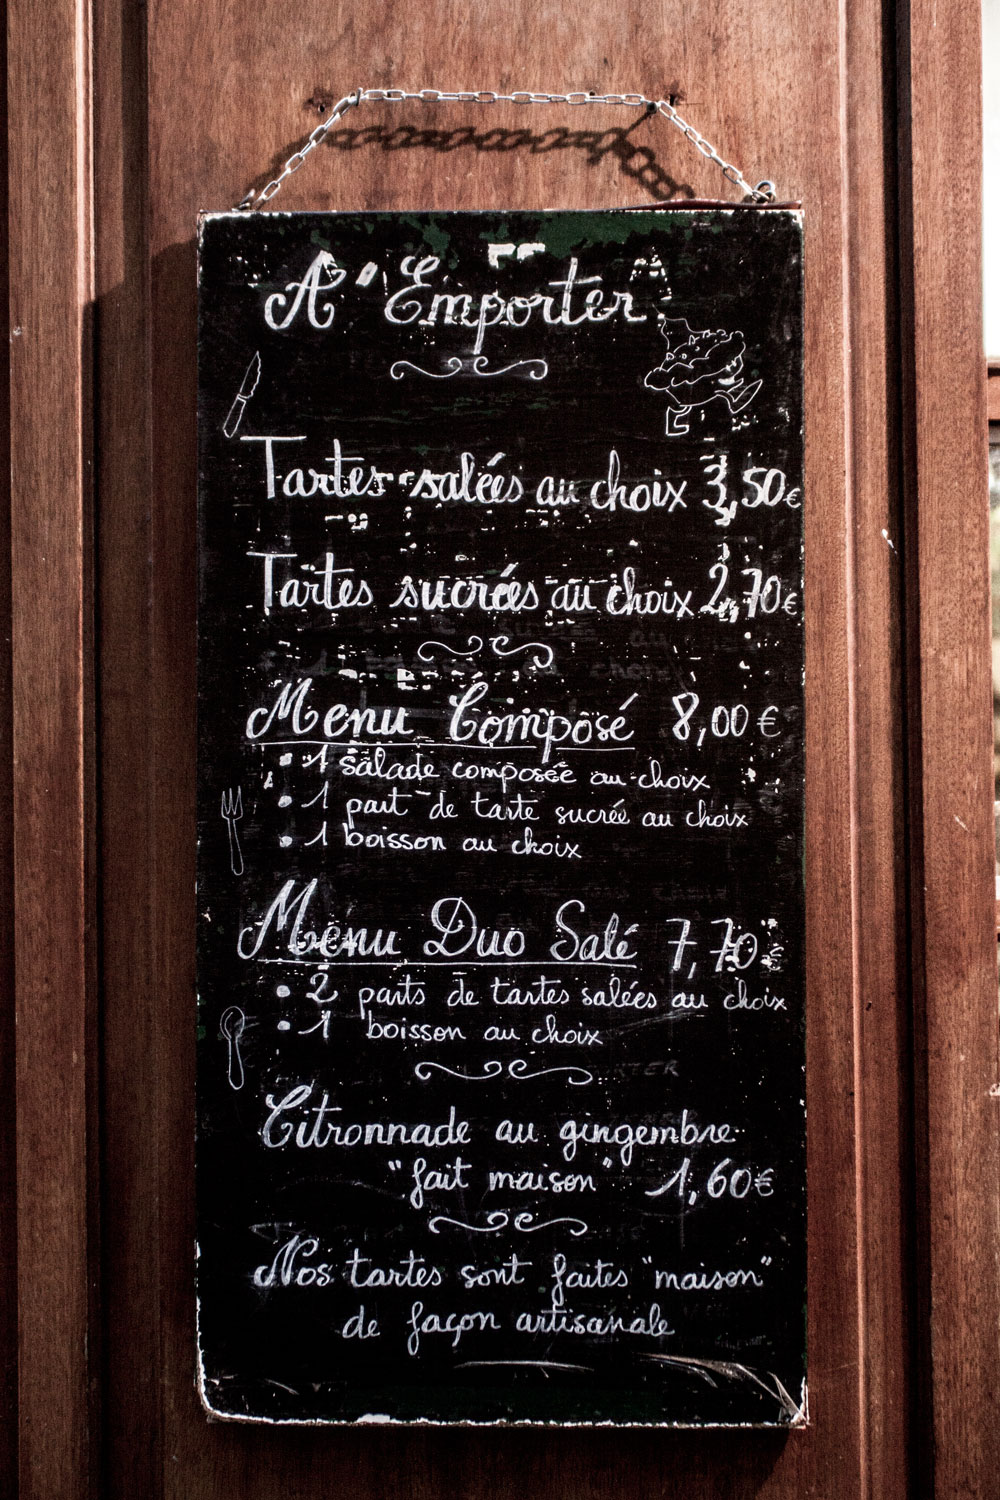 A' Emporter
Tartes salées au choix 3,50€
Tartes sucrées au choix 2,70€
Menu Composé 8,00€
• 1 salade composée au choix
• 1 part de tarte sucrée au choix
• 1 boisson au choix
Menu Duo Salé 7,70€
• 2 parts de tartes salées au choix
• 1 boisson au choix
Citronnade au gingembre
"fait maison" 1,60€
Nos tartes sont faites "maison"
de façon artisanale